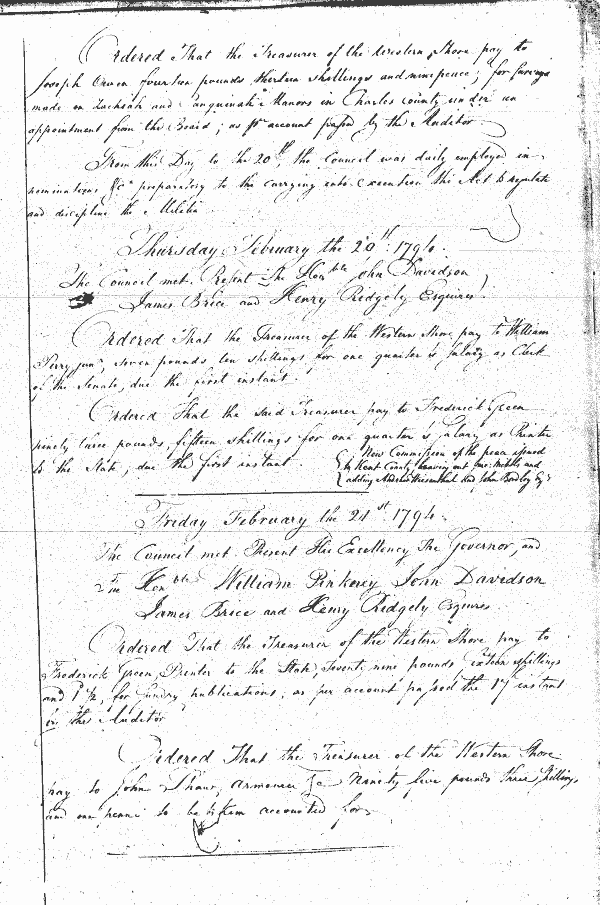 Ordered That the Treasurer of the Western Shore pay to
Joseph Owen fourteen pounds thirteen shillings and nine pence; for surveys
made on Zachiah and Panquiah Manors in Charles County under an
appointment from the Board; as pr account passed by the Auditor.
From this Day to the 20th the Council was daily employed in
nominations &ca preparatory to the carrying into execution the Act to regulate
and discipline the Militia.
Thursday February the 20th 1794.
The Council met. Present The Honble John Davidson
James Brice and Henry Ridgely Esquires.
Ordered That the Treasurer of the Western Shore pay to William
Perry junr, seven pounds ten shillings for one quarter's salary as Clerk
of the Senate, due the first instant.
Ordered That the said Treasurer pay to Frederick Green
ninety three pounds, fifteen shillings for one quarter's salary as Printer
to the State, due the first instant.
New Commission of the peace issued
to Kent County leaving out and
adding and John Esqr
Friday February the 21st 1794.
The Council met Present His Excellency The Governor, and
The Honble William Pinkney John Davidson
James Brice and Henry Ridgely Esquires.
Ordered That the Treasurer of the Western Shore pay to
Frederick Green, Printer to the State, seventy nine pounds shillings
and 1d 1/2 for sundry publications; as per account passed the 17th instant
by the Auditor
Ordered That the Treasurer of the Western Shore
pay to John Shaw, armourer &c Ninety five pounds three shillings
and one penny to be by him accounted for.